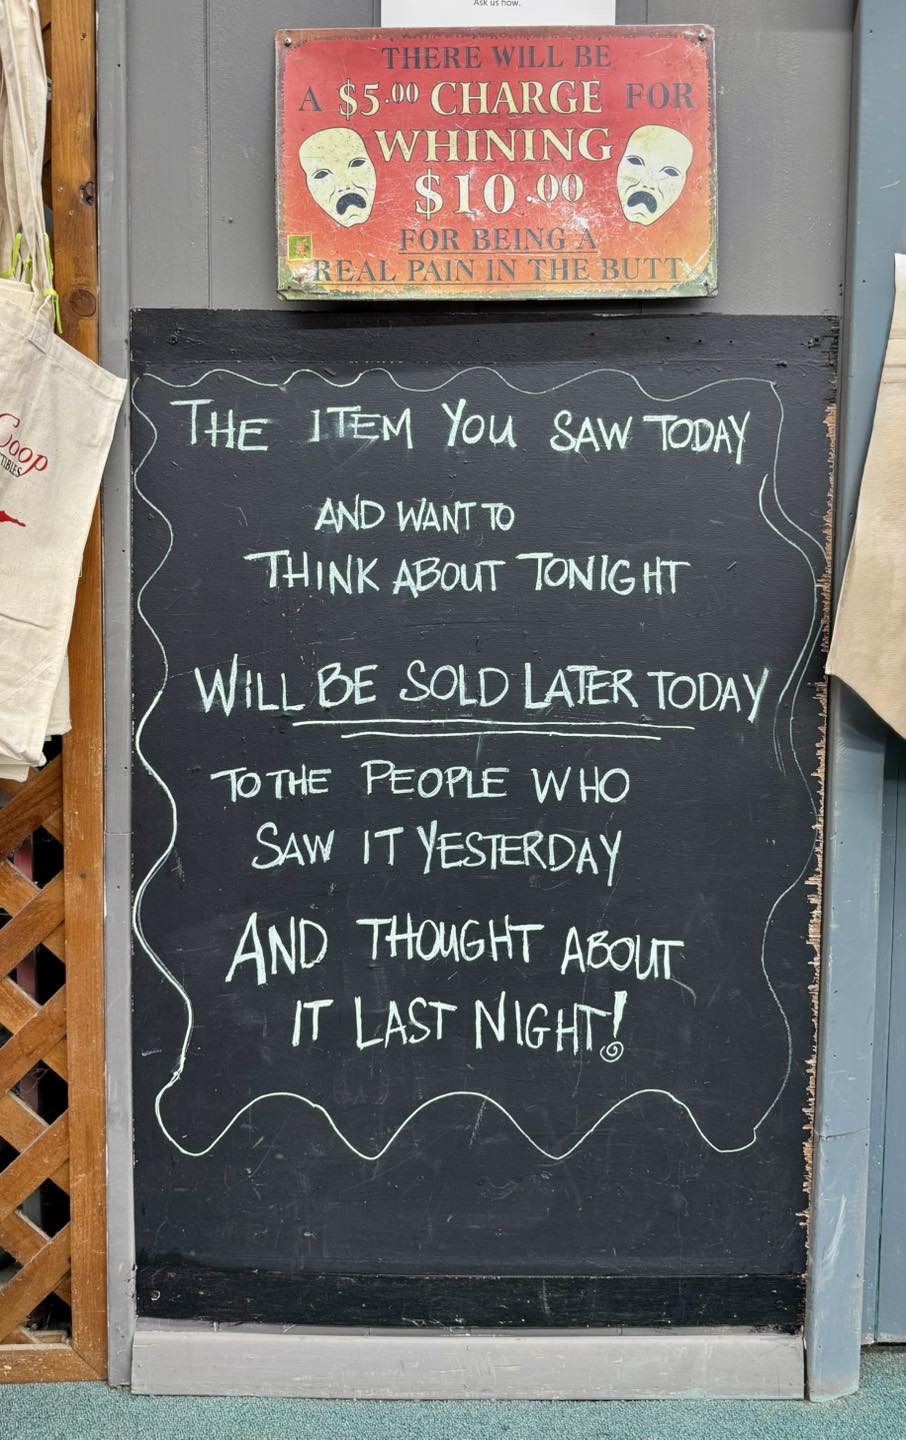 Ask us how.
THERE WILL BE
A $5.00 CHARGE FOR
WHINING
$10.00
FOR BEING A
REAL PAIN IN THE BUTT
THE ITEM YOU SAW TODAY
AND WANT TO
THINK ABOUT TONIGHT
WILL BE SOLD LATER TODAY
TO THE PEOPLE WHO
SAW IT YESTERDAY
AND THOUGHT ABOUT
IT LAST NIGHT!
Coop